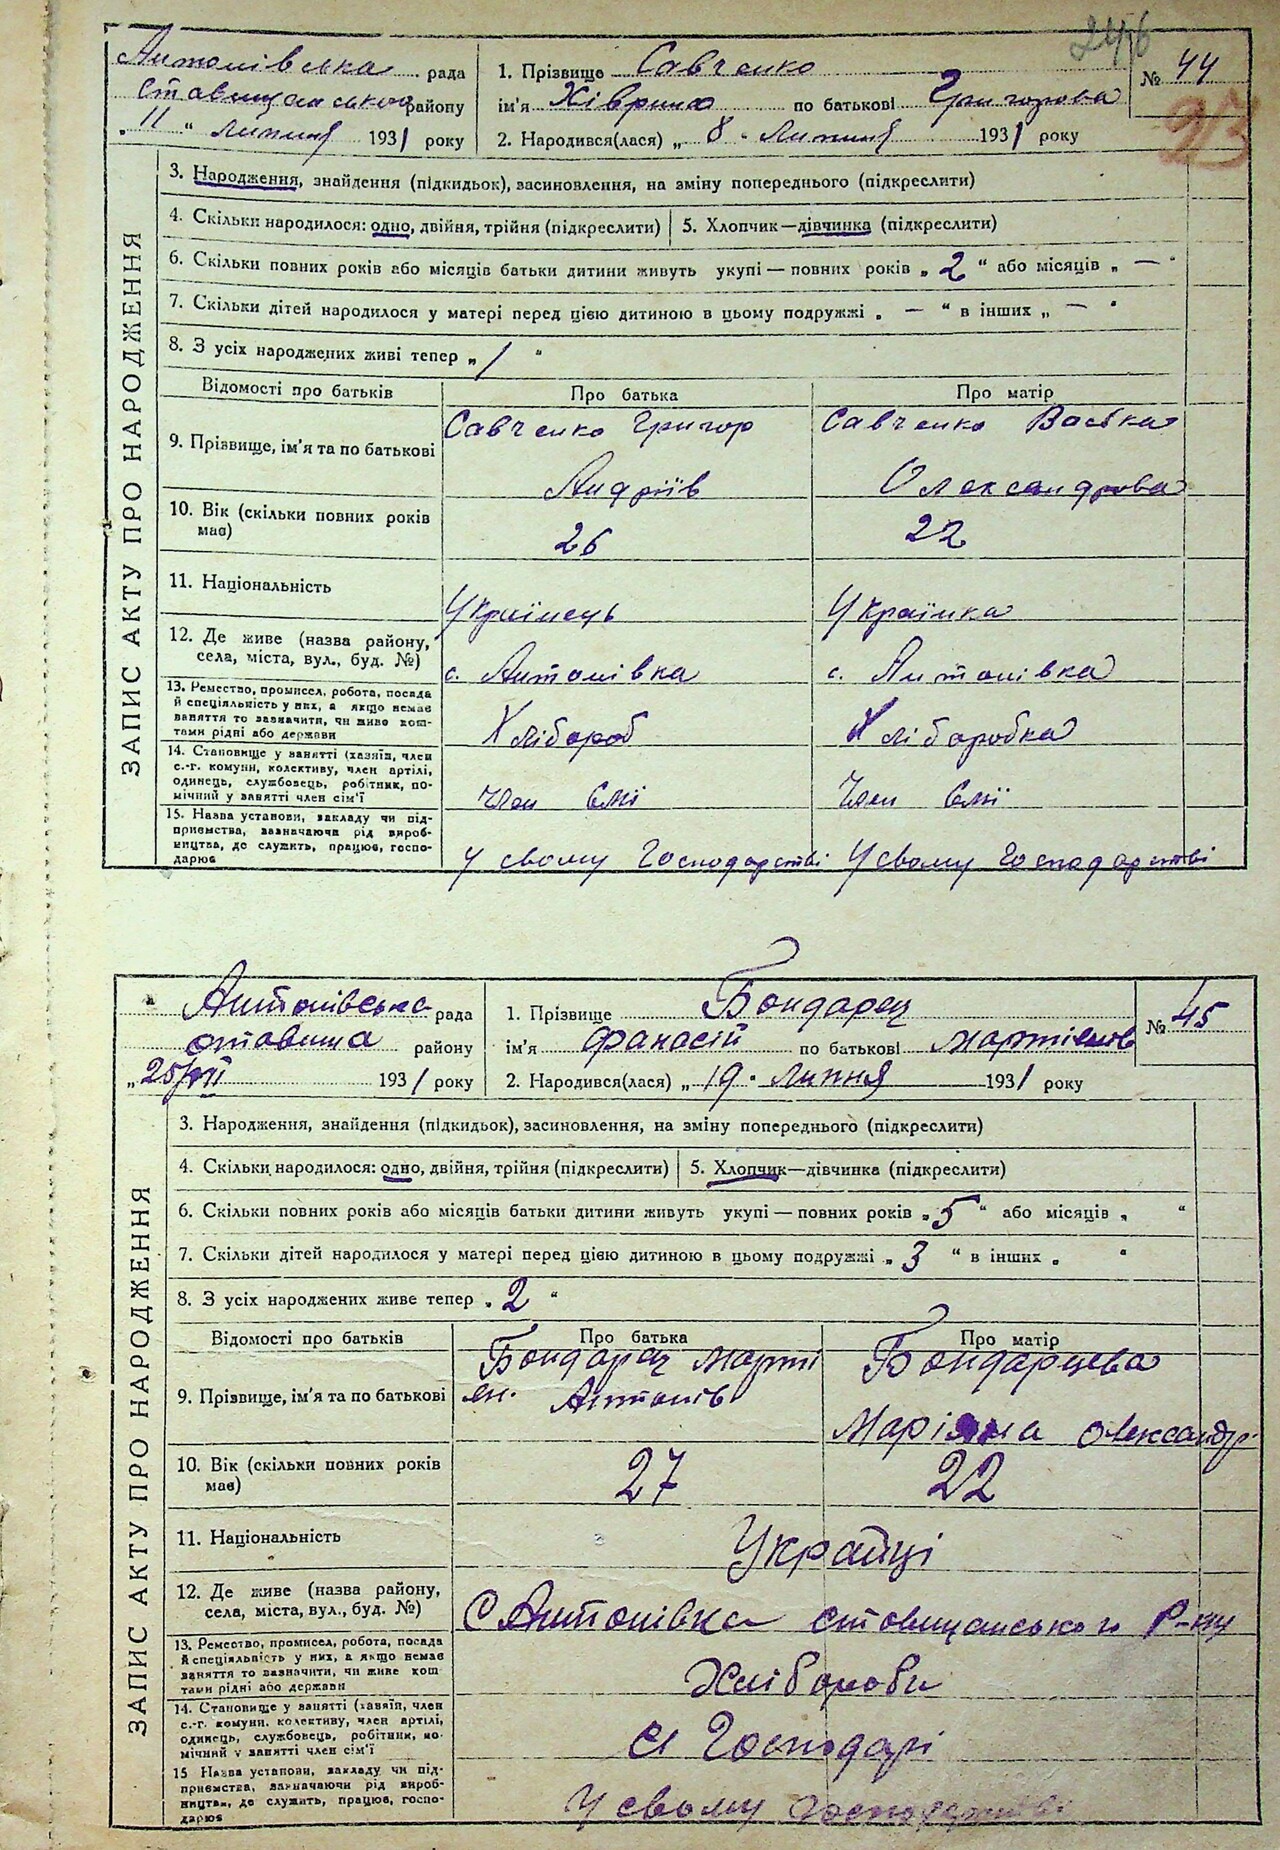 246
Антонівська рада
Ставищанського району
„ 11 “ липня 1931 року
1. Прізвище Савченко
ім'я Хівриня по батькові Григорова
2. Народився(лася) „ 8 . Липня 1931 року
№ 44
3. Народження, знайдення (підкидьок), засиновлення, на зміну попереднього (підкреслити)
4. Скільки народилося: одно, двійня, трійня (підкреслити) 5. Хлопчик—дівчинка (підкреслити)
6. Скільки повних років або місяців батьки дитини живуть укупі — повних років „ 2 “ або місяців „ — “
7. Скільки дітей народилося у матері перед цією дитиною в цьому подружжі „ — “ в інших „ — “
8. З усіх народжених живі тепер „ 1 “
ЗАПИС АКТУ ПРО НАРОДЖЕННЯ
Відомості про батьків Про батька Про матір
9. Прізвище, ім'я та по батькові
Савченко Григор Савченко Васька
Андріїв Олександрова
10. Вік (скільки повних років
має)
26 22
11. Національність
Українець Українка
12. Де живе (назва району,
села, міста, вул., буд. №)
с. Антонівка с. Антонівка
13. Ремество, промисел, робота, посада
й спеціяльність у них, а якщо немає
заняття то зазначити, чи живе кош-
тами рідні або держави
Хлібороб Хліборобка
14. Становище у занятті (хазяїн, член
с.-г. комуни, колективу, член артілі,
одинець, службовець, робітник, по-
мічний у занятті член сім'ї
Член Смі Член Смї
15. Назва установи, закладу чи під-
приємства, зазначаючи рід вироб-
ництва, де служить, працює, госпо-
дарює
у свому Господарстві У свому Господарстві
Антонівська рада
ставища району
„ 25/VII 1931 року
1. Прізвище Бондарец
ім'я Фанасій по батькові мартіянов
2. Народився(лася) „ 19 . Липня 1931 року
№ 45
3. Народження, знайдення (підкидьок), засиновлення, на зміну попереднього (підкреслити)
4. Скільки народилося: одно, двійня, трійня (підкреслити) 5. Хлопчик—дівчинка (підкреслити)
6. Скільки повних років або місяців батьки дитини живуть укупі — повних років „ 5 “ або місяців „ “
7. Скільки дітей народилося у матері перед цією дитиною в цьому подружжі „ 3 “ в інших „ “
8. З усіх народжених живе тепер „ 2 “
ЗАПИС АКТУ ПРО НАРОДЖЕННЯ
Відомості про батьків Про батька Про матір
9. Прізвище, ім'я та по батькові
Бондарец марті Бондарцева
ян. Антонів
Маріяна Олександр.
10. Вік (скільки повних років
має)
27 22
11. Національність
Українці
12. Де живе (назва району,
села, міста, вул., буд. №)
С Антонівка ставищанського Р-ну
13. Ремество, промисел, робота, посада
й спеціяльність у них, а якщо немає
заняття то зазначити, чи живе кош-
тами рідні або держави
Хлібороби
14. Становище у занятті (хазяїн, член
с.-г. комуни, колективу, член артілі,
одинець, службовець, робітник, по-
мічний у занятті член сім'ї
Господарі
15 Назва установи, закладу чи під-
приємства, зазначаючи рід вироб-
ництва, де служить, працює, госпо-
дарює
у свому господарстві